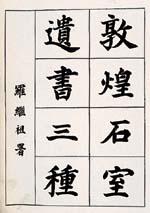 敦煌石室
遺書三種
羅繼祖署